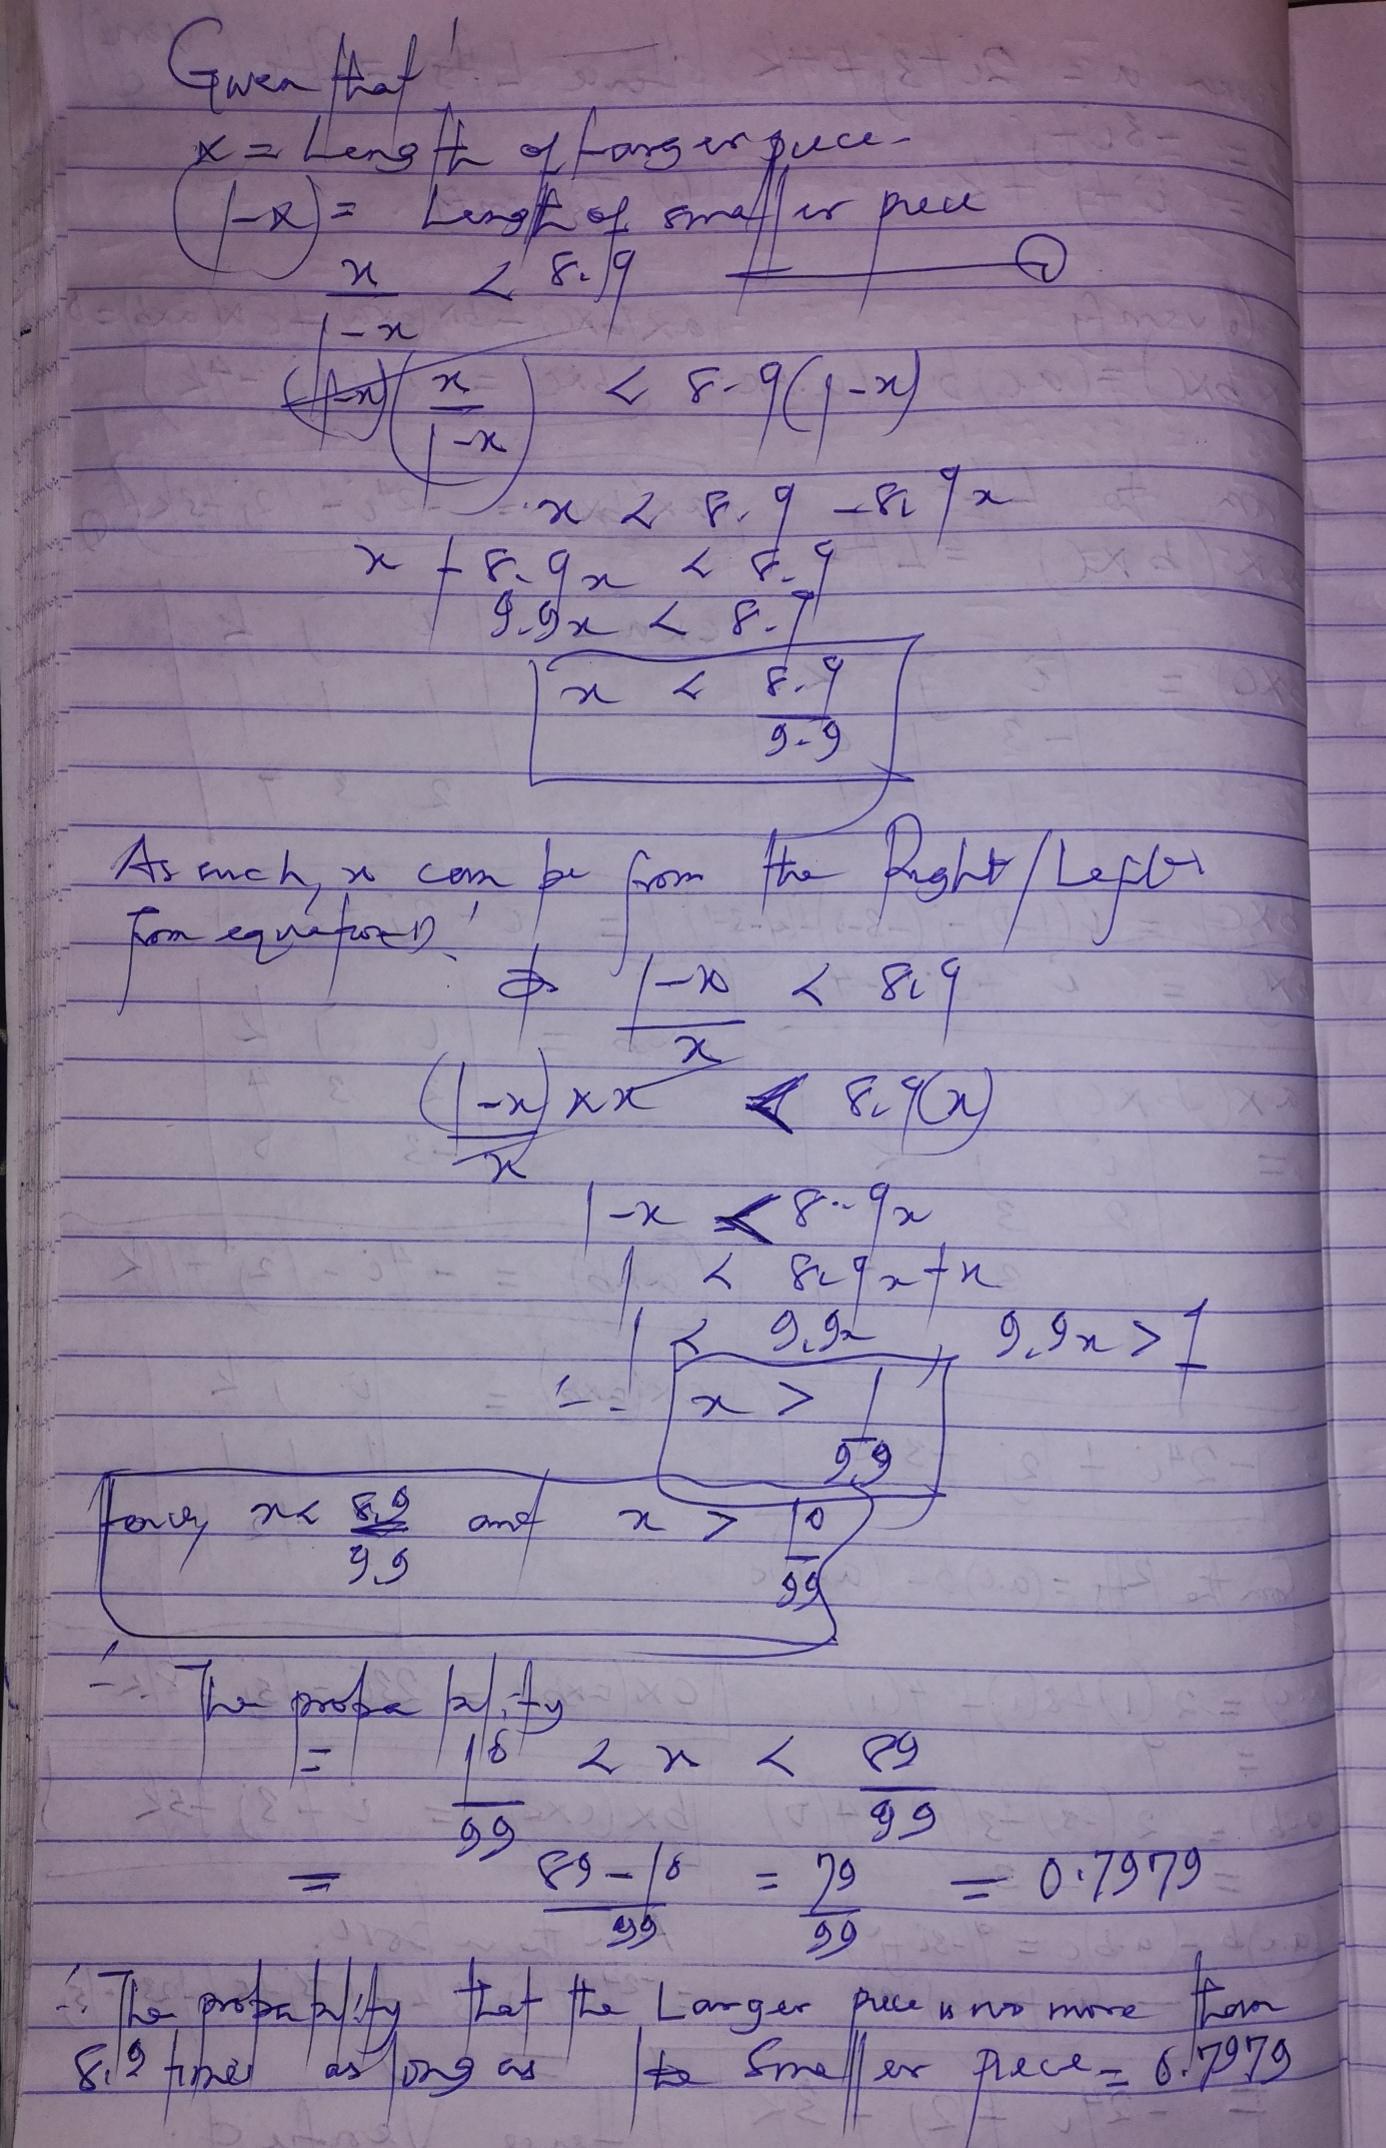 Given that
x = Length of Larger piece
(1-x) = Length of smaller piece
x/1-x < 8.9 ——— 1
(1-x)(x/1-x) < 8.9(1-x)
x < 8.9 - 8.9x
x + 8.9x < 8.9
9.9x < 8.9
x < 8.9/9.9
As such, x can be from the Right/Left
from equation 1,
⇒ 1-x/x < 8.9
(1-x/x) x x < 8.9(x)
1-x < 8.9x
1 < 8.9x + x
1 < 9.9x, 9.9x > 1
∴ x > 1/9.9
Hence, x < 8.9/9.9 and x > 10/99
∴ The probability
= 10/99 < x < 89/99
= 89-10/99 = 79/99 = 0.7979
∴ The probability that the Larger piece is no more than
8.9 times as long as the Smaller piece = 0.7979